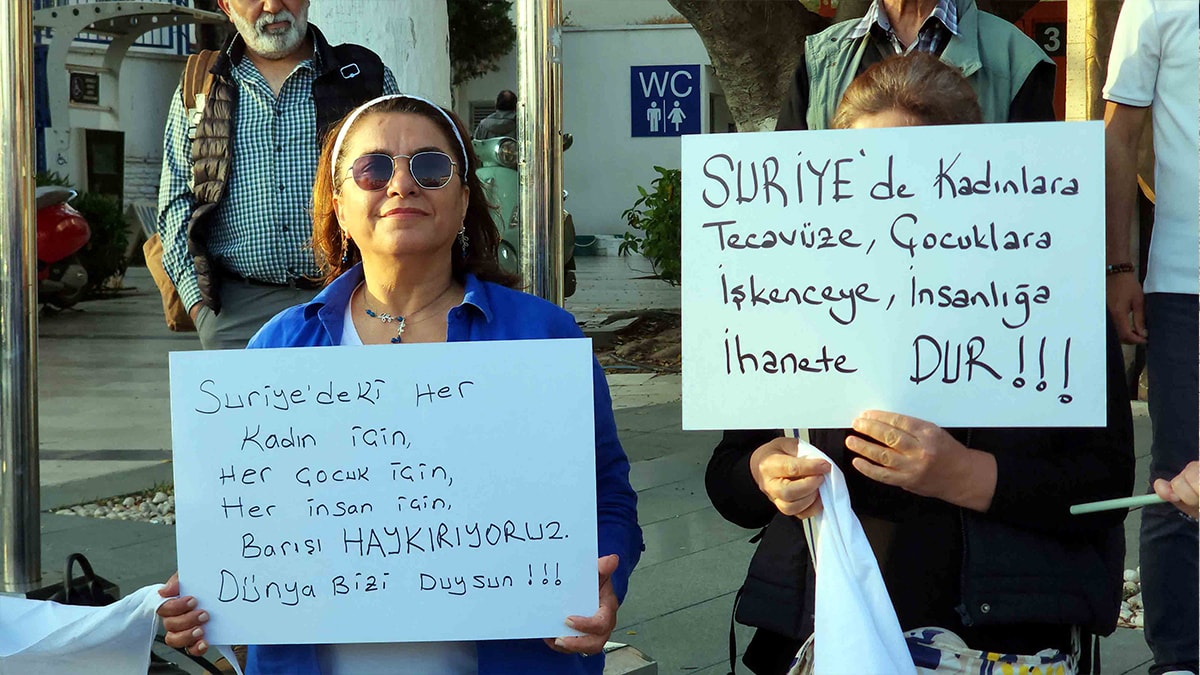 WC
3
SURİYE'de Kadınlara
Tecavüze, Çocuklara
İşkenceye, İnsanlığa
İhanete DUR!!!
Suriye'deki Her
Kadın için,
Her Çocuk için,
Her insan için,
Barışı HAYKIRIYORUZ.
Dünya Bizi Duysun!!!